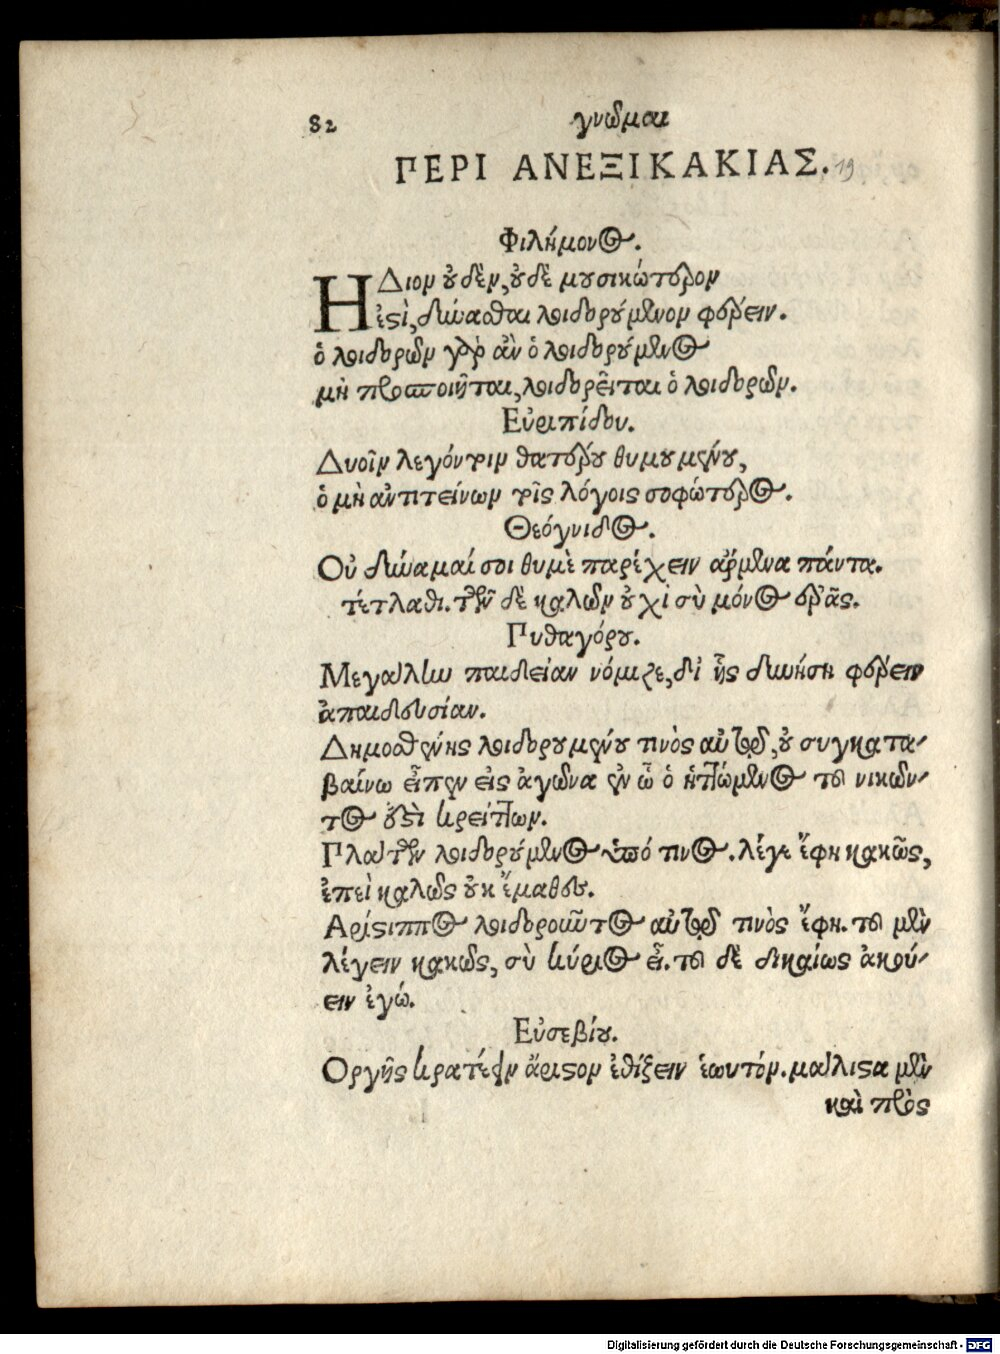 82 γνῶμαι
ΠΕΡΙ ΑΝΕΞΙΚΑΚΙΑΣ. 19
Φιλήμονος.
ΗΔιον οὐδὲν, οὐδὲ μουσικώτερον
ἐστὶ, δύνασθαι λοιδορούμενον φέρειν.
ὁ λοιδορῶν γὰρ ἂν ὁ λοιδορούμενος
μὴ προσποιῆται, λοιδορεῖται ὁ λοιδορῶν.
Εὐριπίδου.
Δυοῖν λεγόντοιν θατέρου θυμουμένου,
ὁ μὴ ἀντιτείνων τοῖς λόγοις σοφώτερος.
Θεόγνιδος.
Οὐ δύναμαί σοι θυμὲ παρέχειν ἄρμενα πάντα.
τέτλαθι. τῶν δὲ καλῶν οὐχὶ σὺ μόνος ἐρᾷς.
Πυθαγόρου.
Μεγάλην παιδείαν νόμιζε, δι' ἧς δυνήσῃ φέρειν
ἀπαιδευσίαν.
Δημοσθένης λοιδορουμένου τινὸς αὐτῷ, οὐ συγκατα-
βαίνω εἶπεν εἰς ἀγῶνα ἐν ᾧ ὁ ἡττώμενος τοῦ νικῶν-
τος ἐστὶ κρείττων.
Πλάτων λοιδορούμενος ὑπό τινος. λέγε ἔφη κακῶς,
ἐπεὶ καλῶς οὐκ ἔμαθες.
Αρίστιππος λοιδοροῦντος αὐτῷ τινὸς ἔφη. τοῦ μὲν
λέγειν κακῶς, σὺ κύριος εἶ. τοῦ δὲ δικαίως ἀκού-
ειν ἐγώ.
Εὐσεβίου.
Οργῆς κρατέειν ἄριστον ἐθίξειν ἑωυτόν. μάλιστα μὲν
καὶ πρὸς
Digitalisierung gefördert durch die Deutsche Forschungsgemeinschaft - DFG